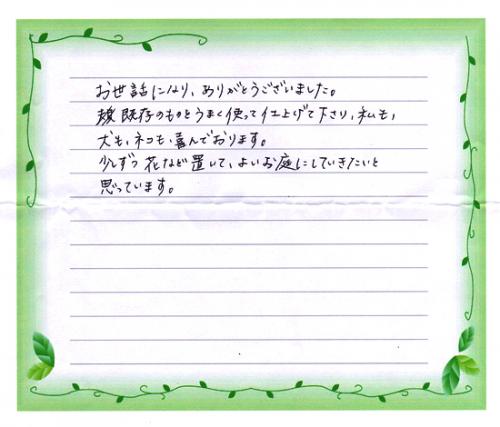 お世話になり、ありがとうございました。
既存のものをうまく使って仕上げて下さり、私も、
犬も、ネコも、喜んでおります。
少しずつ花など置いて、よいお庭にしていきたいと
思っています。